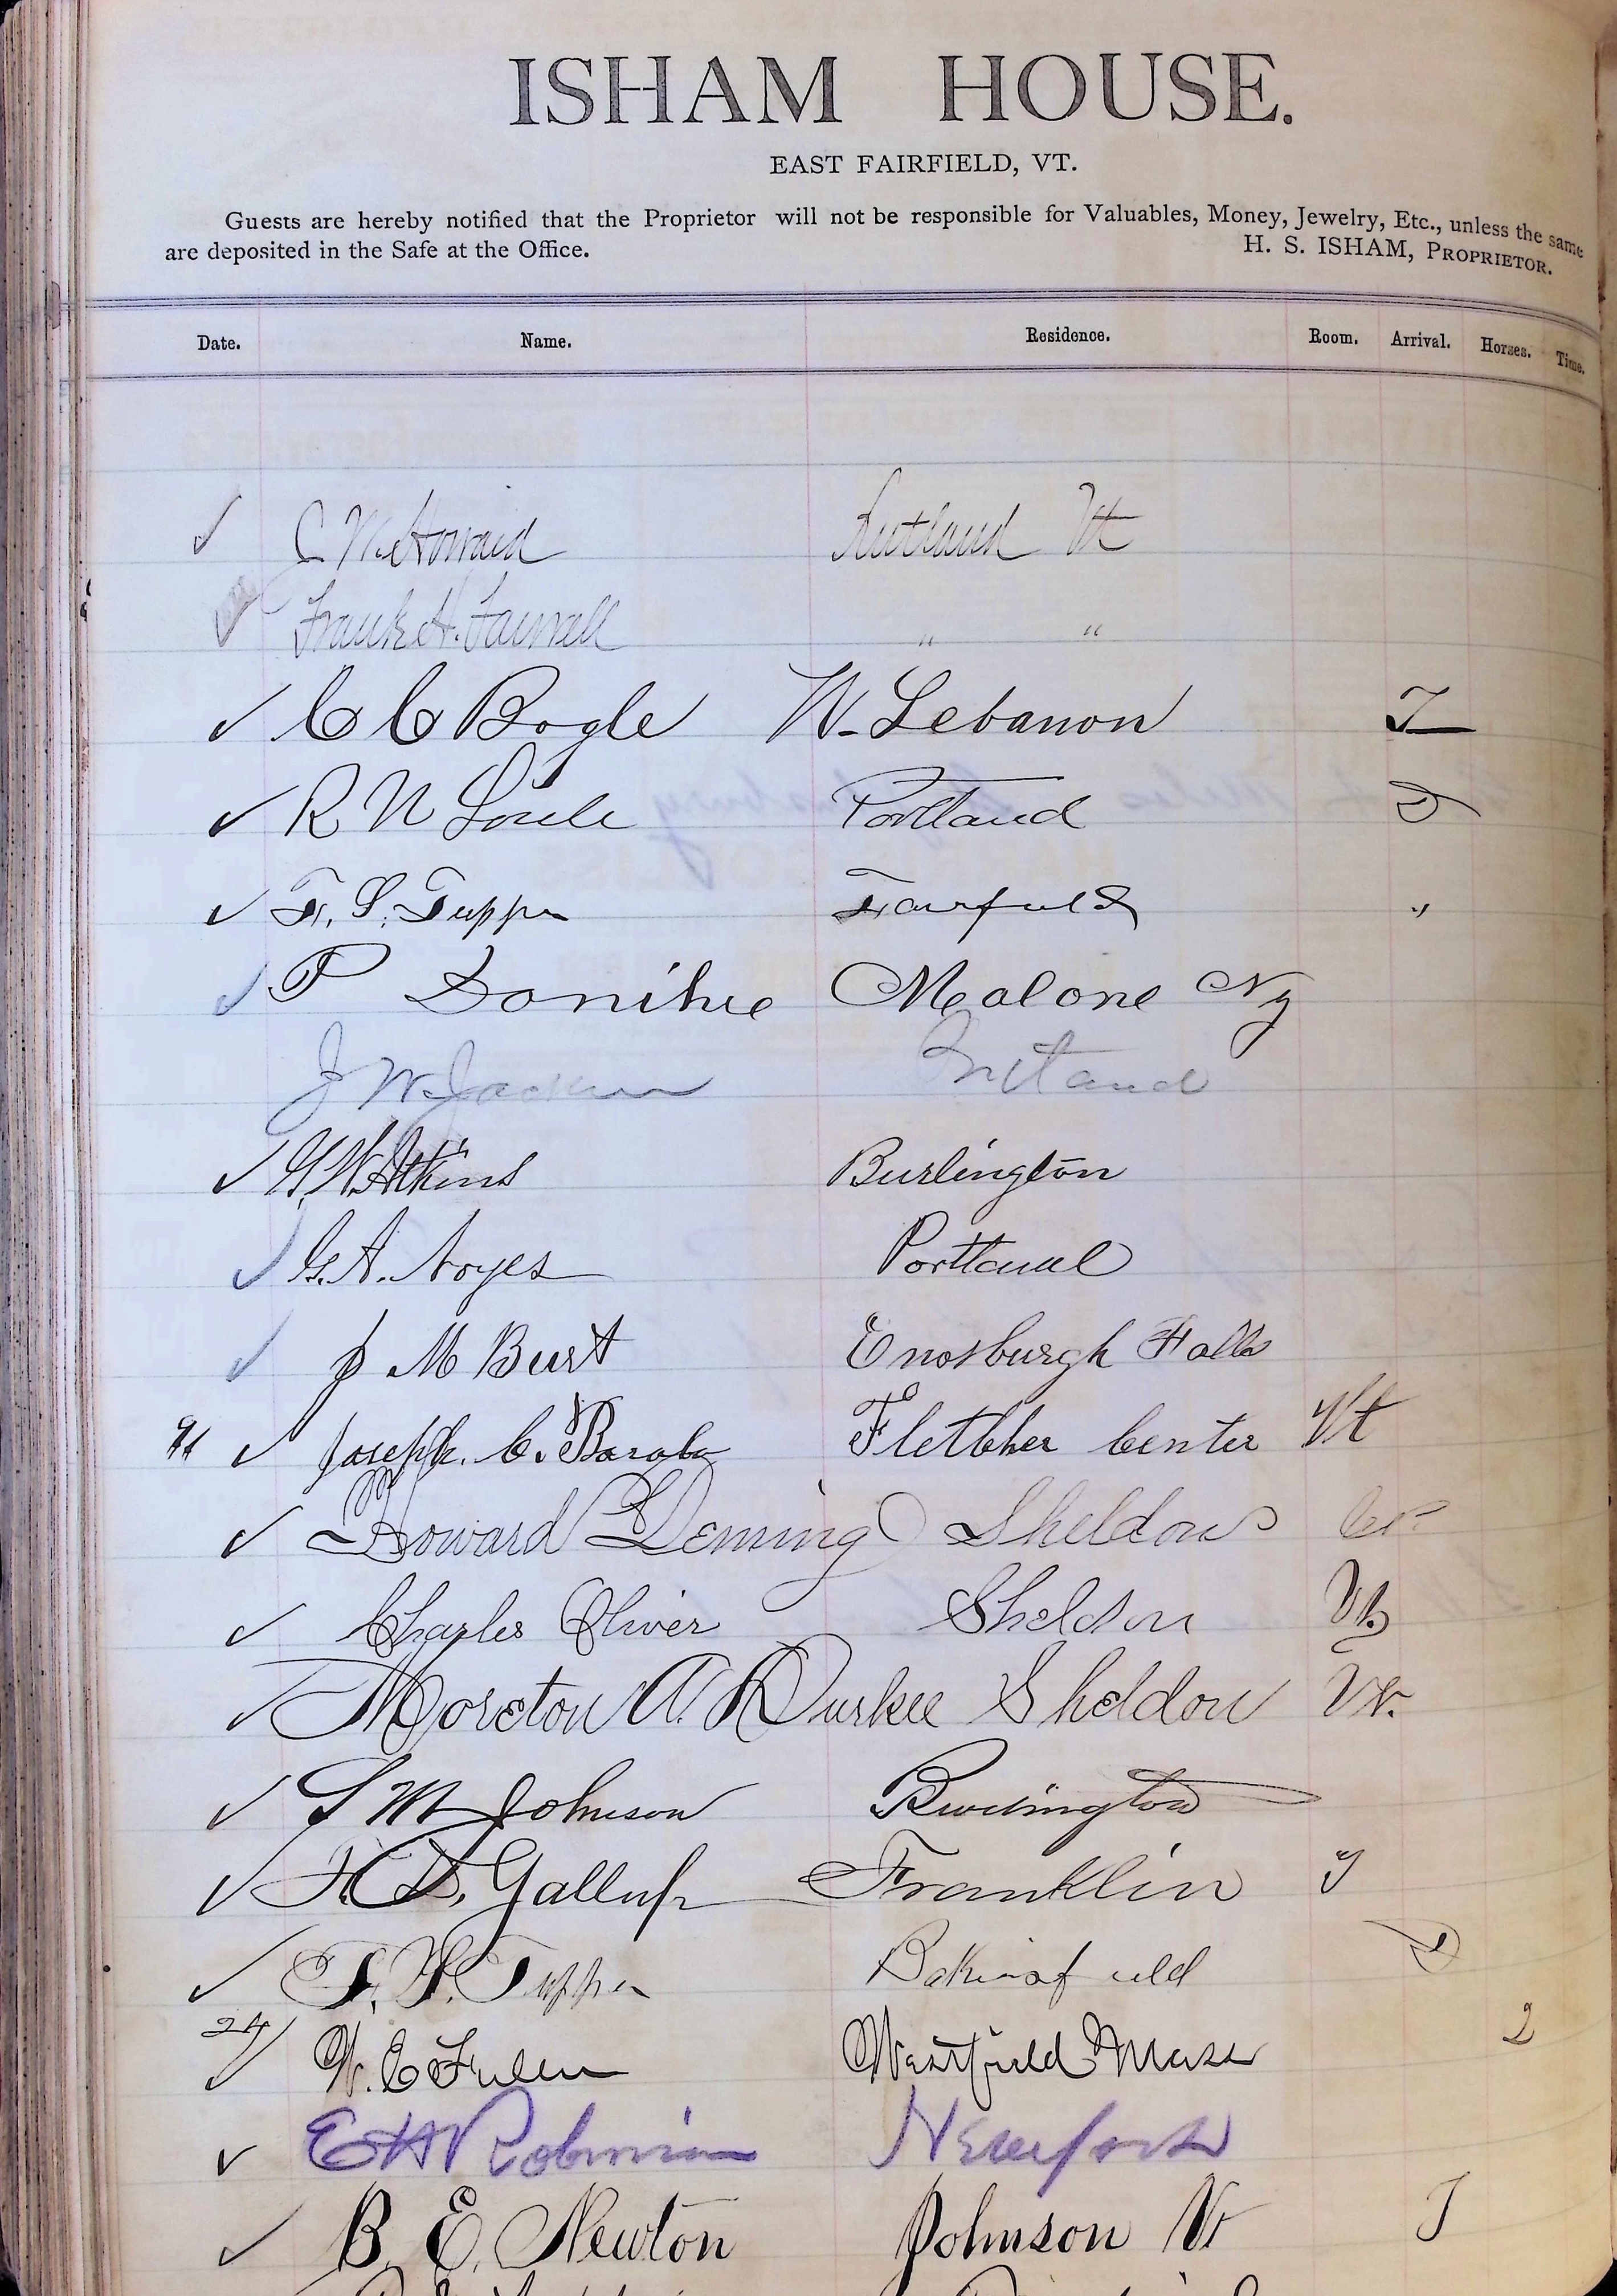 ISHAM HOUSE.
EAST FAIRFIELD, VT.
Guests are hereby notified that the Proprietor will not be responsible for Valuables, Money, Jewelry, Etc., unless the same
are deposited in the Safe at the Office. H. S. ISHAM, PROPRIETOR.
Date. Name. Residence. Room. Arrival. Horses. Time.
✓ C W. Howard Rutland Vt
✓ Frank H. Farwell " "
✓ C C Bogle W. Lebanon T
✓ R N Soule Portland D
✓ F. S. Tupper Fairfield "
✓ P Donihue Malone Ny
J W. Jackson Rutland
✓ G. W. Atkins Burlington
✓ G. A. Noyes Portland
✓ J M Burt Enosburgh Falls
✓ Joseph. C. Fletcher Center Vt
✓ Howard Deming Sheldon
✓ Charles Oliver Sheldon Vt
✓ Moreton A. Durkee Sheldon Vt.
✓ S M Johnson Burlington
✓ F. D. Gallup Franklin
✓ F. S. Tupper Bakersfield D
24 ✓ W. C Fuller Westfield Mass 2
✓ E H Robinson Newport
✓ B. E. Newton Johnson Vt T